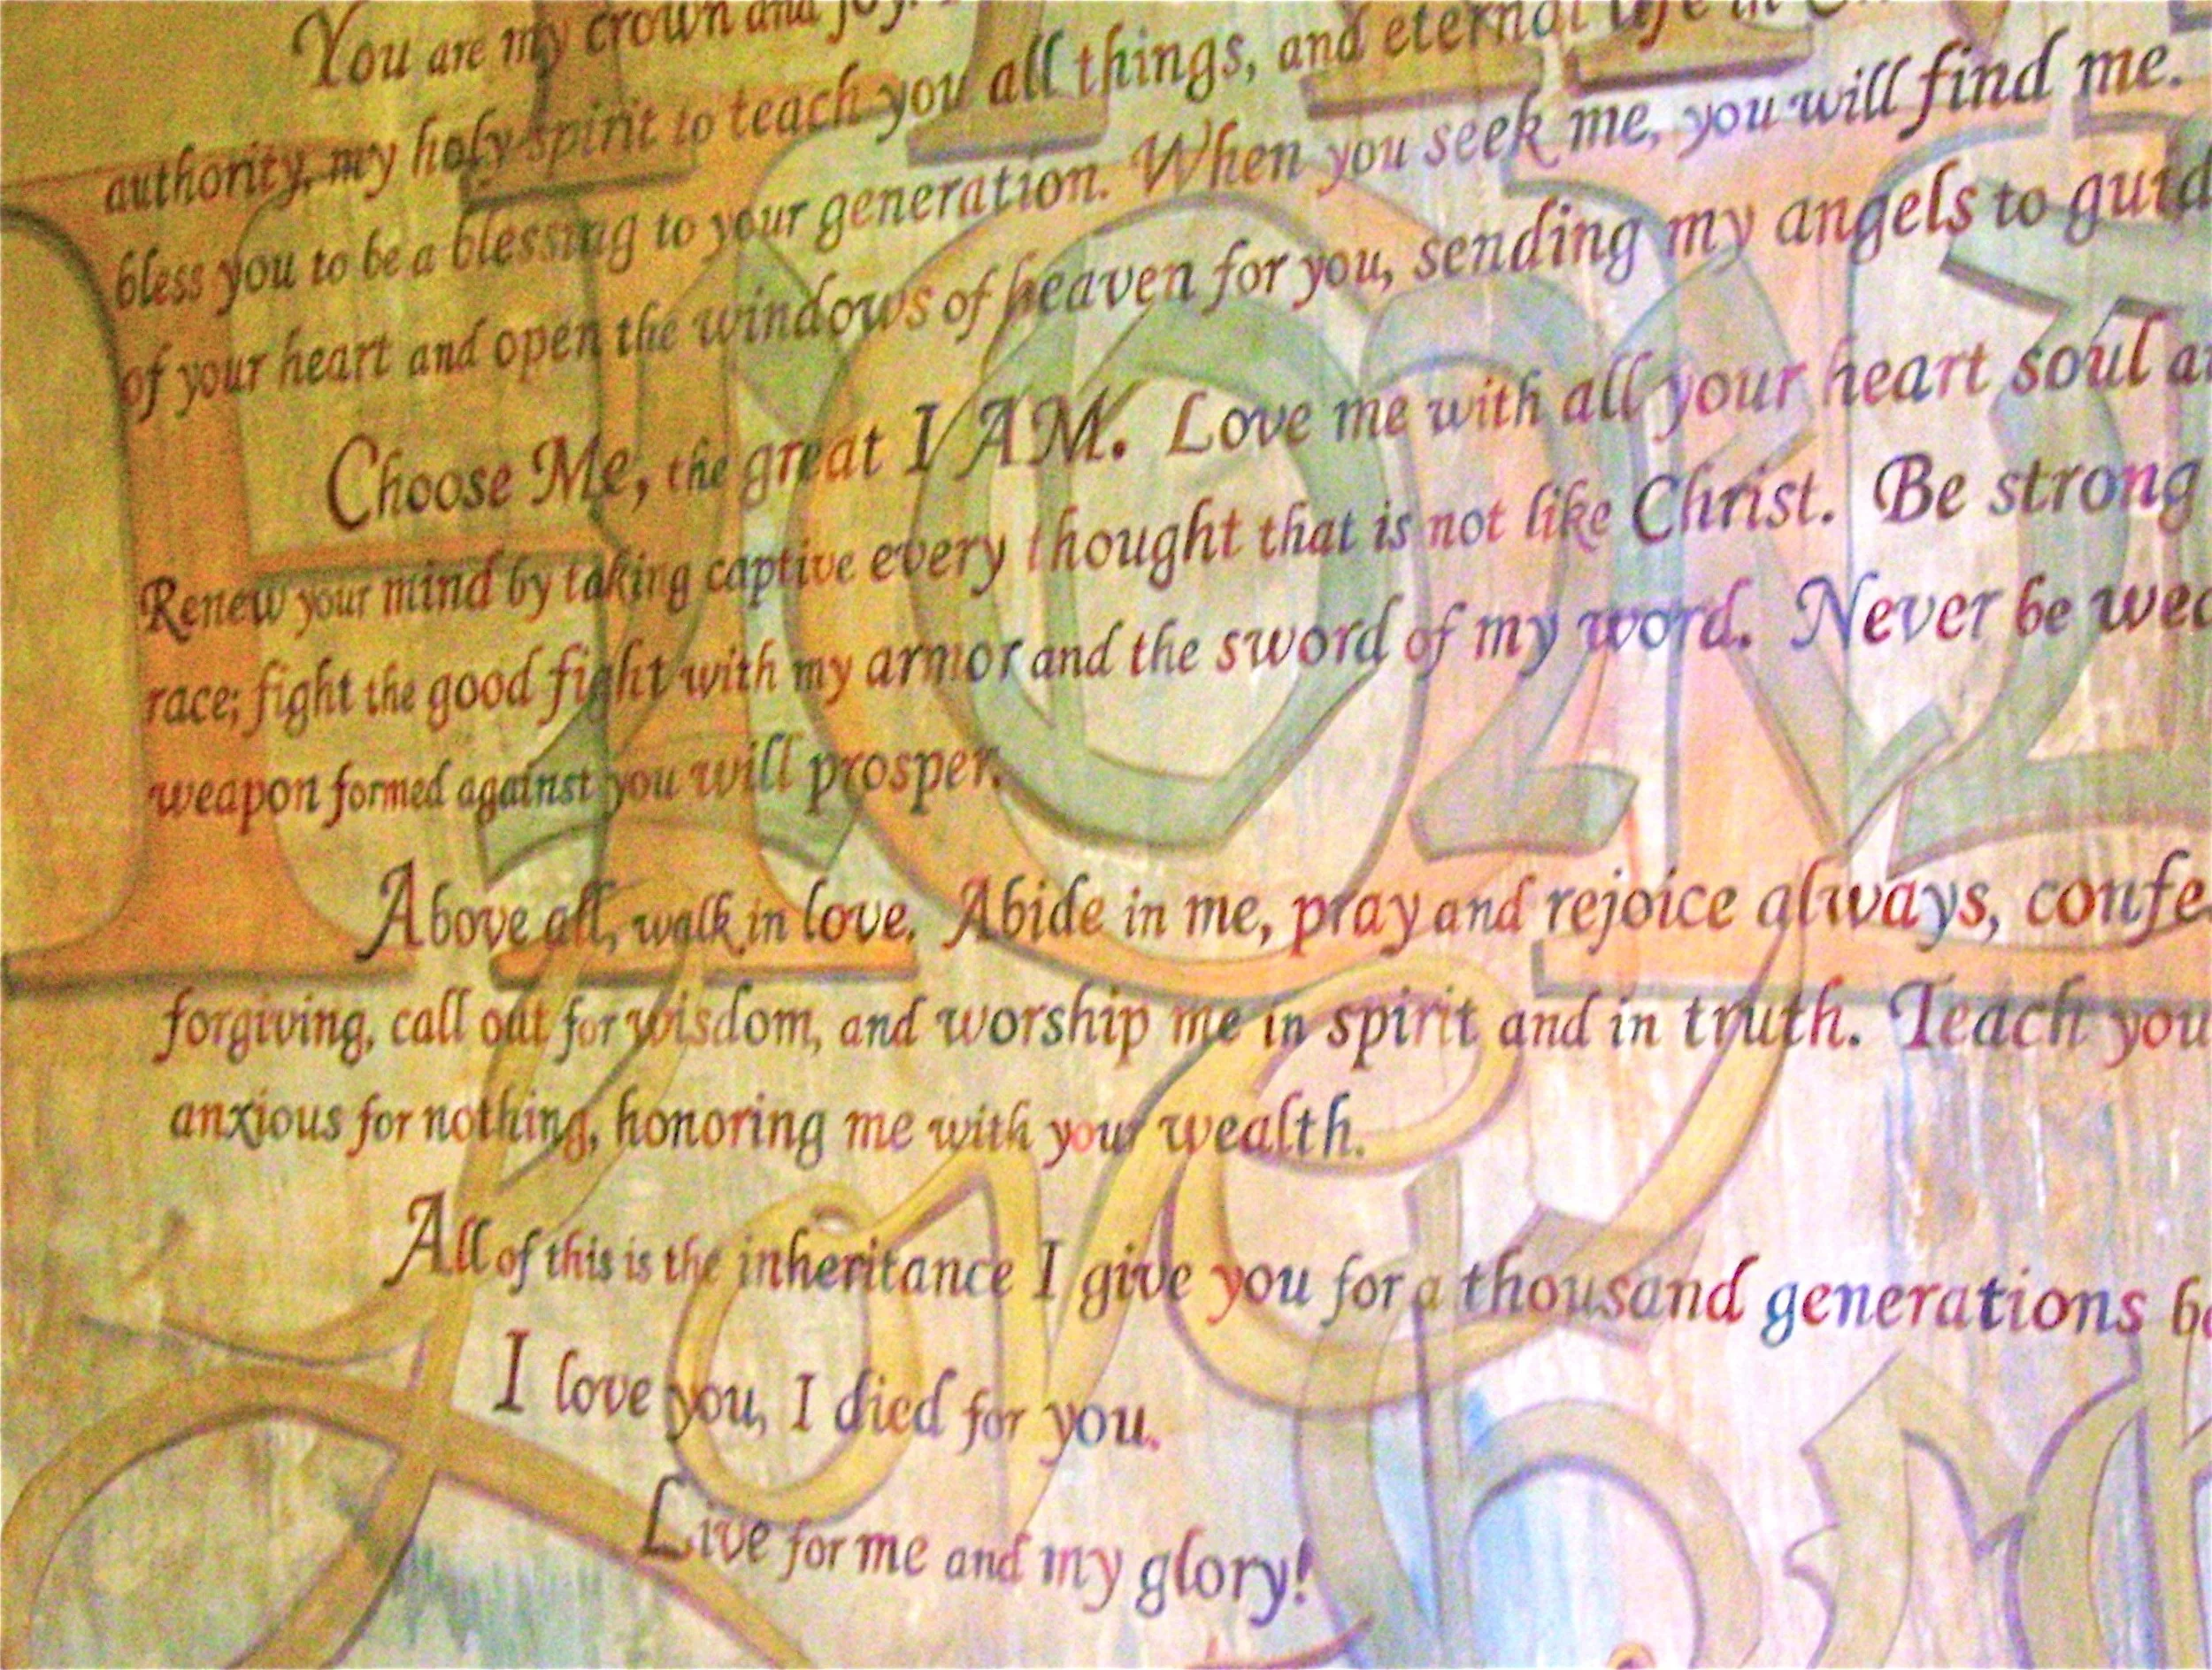 You are my crown and joy.
authority, my holy spirit to teach you all things, and eternal life in
bless you to be a blessing to your generation. When you seek me, you will find me.
of your heart and open the windows of heaven for you, sending my angels to guid
Choose Me, the great I AM. Love me with all your heart soul a
Renew your mind by taking captive every thought that is not like Christ. Be strong
race; fight the good fight with my armor and the sword of my word. Never be wea
weapon formed against you will prosper.
Above all, walk in love. Abide in me, pray and rejoice always, confe
forgiving, call out for wisdom, and worship me in spirit and in truth. Teach you
anxious for nothing, honoring me with your wealth.
All of this is the inheritance I give you for a thousand generations be
I love you, I died for you.
Live for me and my glory!